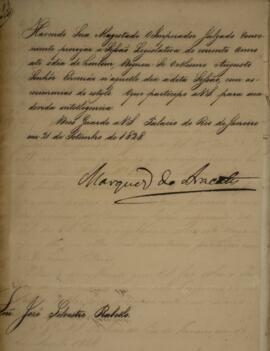 Havendo Sua Magestade O Imperador Julgado Conve-
niente prorogar a Sessão Legislativa do corrente Anno
até o dia de hontem, Dignou-Se O Mesmo Augusto
Senhor Cerrar n'aquelle dia a dita Sessão, com as
ceremonias do estilo. O que participo a V.S. para sua
devida intelligencia.
Deos Guarde a V.S. Palacio do Rio de Janeiro
em 21 de Setembro de 1828.
Marquez do Aracaty
Snr. José Silvestre Rebello.